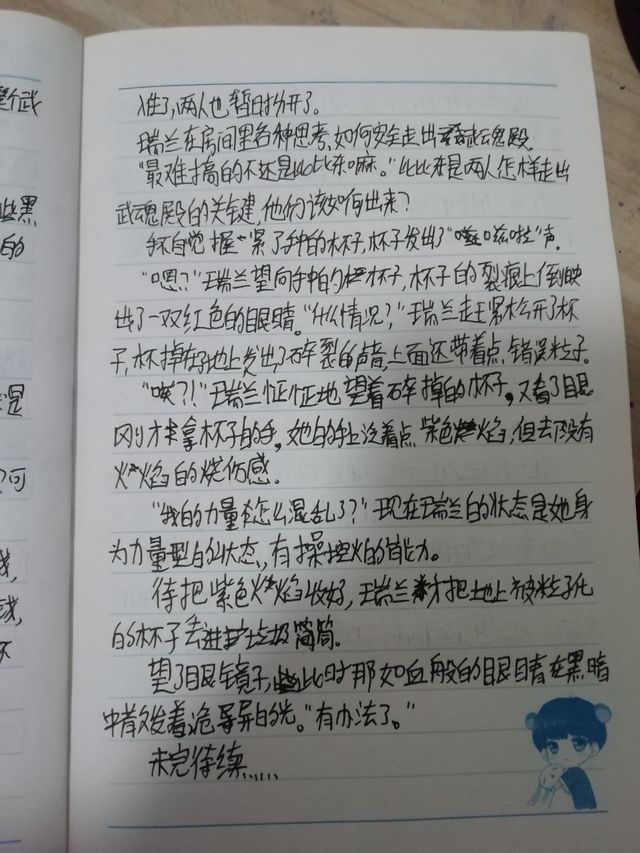 个武
些黑
的
是
可
戏,
线,
不
准了,两人也暂时分开了。
瑞兰在房间里各种思考,如何安全走出武魂殿。
"最难搞的不还是比比东嘛。"比比东是两人怎样走出
武魂殿的关键,他们该如何出来?
手不自觉握紧了手中的杯子,杯子发出了"嗞啦"声。
"嗯?"瑞兰望向手中的杯子,杯子的裂痕上倒映
出了一双红色的眼睛。"什么情况?"瑞兰赶紧松开了杯
子,杯掉在地上发出了碎裂的声音,上面还带着点错误粒子。
"唉?!"瑞兰怔怔地望着碎掉的杯子。又看了眼
刚才拿杯子的手。她的手上泛着点紫色火焰,但却没有
火焰的烧伤感。
"我的力量怎么混乱了?"现在瑞兰的状态是她身
为力量型的状态,有操控火的能力。
待把紫色火焰收好,瑞兰才把地上被粒子化
的杯子丢进垃圾筒。
望了眼镜子,此时那如血般的眼睛在黑暗
中散发着诡异的光。"有办法了。"
未完待续......